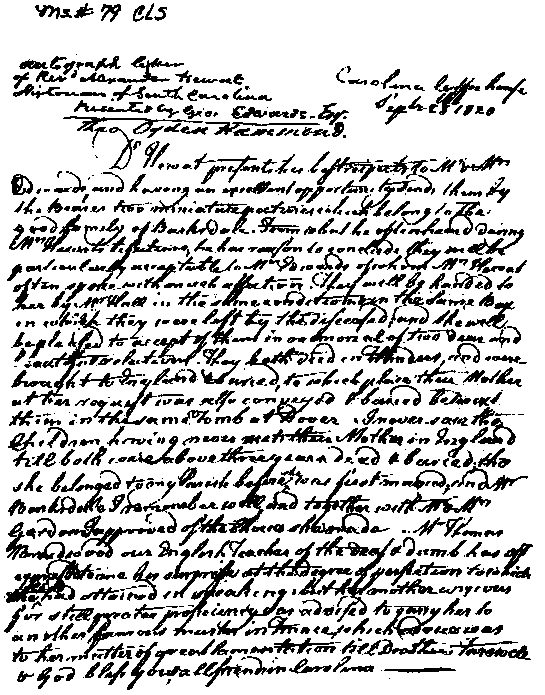 Ms # 79 CLS
Autograph letter
of Revd Alexander Hewat
Historian of South Carolina
Presented by Geo: Edwards Esqr.
Theo Ogden Hammond.
Carolina Coffee house
Septr 28 1820
Dr Hewat presents his best respects to Mr & Mrs
Edwards, and having an excellent opportunity sends them by
the Bearer two miniature pictures which belong to the
good family of Barksdale. From what he often heard during
Mrs Hewat's lifetime, he has reason to conclude they will be
particularly acceptable to Mrs Edwards of whom Mrs Hewat
often spoke with much affection. They will be handed to
her by Mr Wall in the same condition & in the same Box
in which they were left by the deceased, and she will
be pleased to accept of them in memorial of two dear and
relations. They both died in Flanders, and were
brought to England & buried, to which place their Mother
at her request was also conveyed & buried betwixt
them in the same Tomb at Dover. I never saw the
Children having never met their Mother in England
till both were above three years dead & buried, tho
she belonged to my Parish before she was first married, and Mr
Barksdale I remember well, and together with Mr & Mrs
Gardon approved of the choice she made. Mr Thomas
Braidwood our English Teacher of the deaf & dumb has oft
expressed to me his surprise at the degree of perfection to which
she had attained in speaking; but her mother anxious
for still greater proficiency was advised to carry her to
another famous master in France, which was
to her matter of great lamentation till Death. Farewell
& God bless you all friends in Carolina